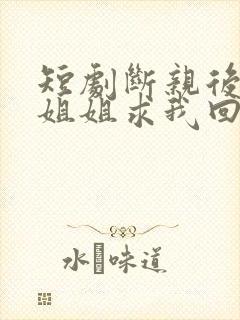 短劇斷親後
姐姐求我回
水 味道